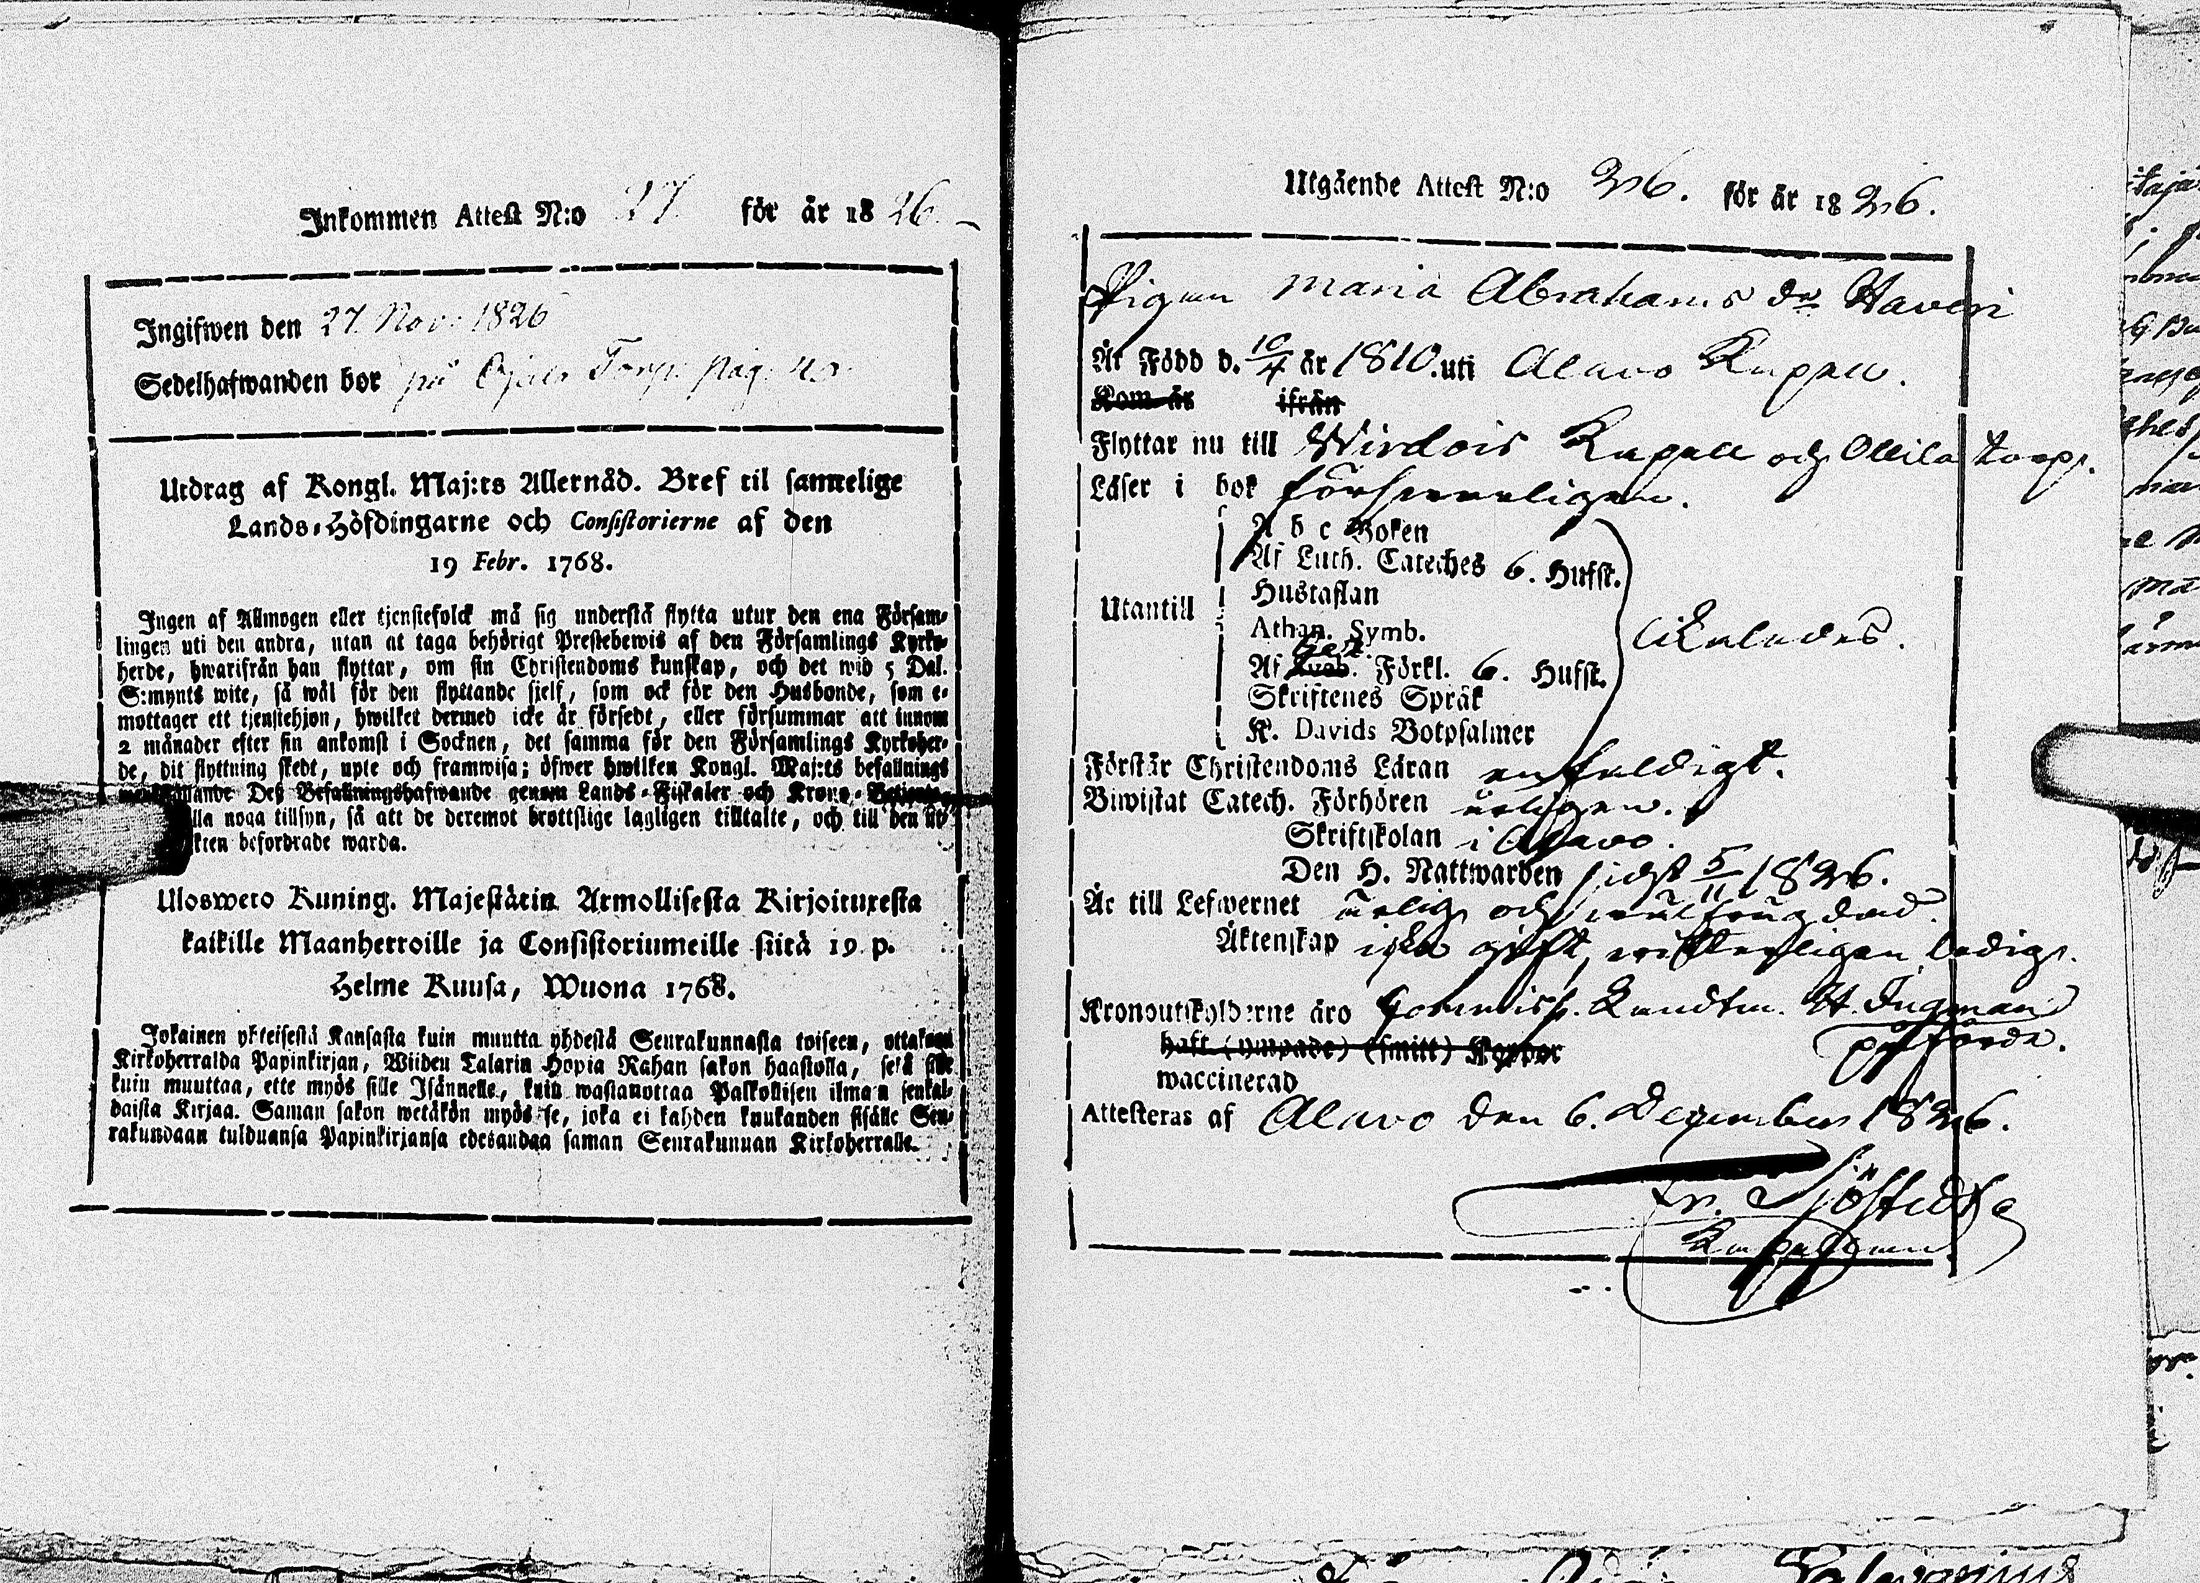 Inkommen Attest N:o 27. för år 1826.
Ingifwen den 27 Nov: 1826
Sedelhafwanden bor på Torp pag:
Utdrag af Kongl. Maj:ts Allernåd. Bref til samtelige
Lands-Höfdingarne och Consistorierne af den
19 Febr. 1768.
Ingen af Allmogen eller tjenstefolck må sig understå flytta utur den ena Försam-
lingen uti den andra, utan at taga behörigt Prestebewis af den Församlings Kyrko-
herde, hwarifrån han flyttar, om sin Christendoms kunskap, och det wid 5 Dal.
S:mynts wite, så wäl för den flyttande sjelf, som ock för den Husbonde, som e-
mottager ett tjenstehjon, hwilket dermed icke är försedt, eller försummar att innom
2 månader efter sin ankomst i Socknen, det samma för den Församlings Kyrkoher-
de, dit flyttning skedt, upte och framwisa; öfwer hwilken Kongl. Maj:ts befallnings
Deß Befallningshafwande genom Lands-Fiskaler och Krono-
lla noga tillsyn, så att de deremot brottslige lagligen tilltalte, och till den
kten befordrade warda.
Ulosweto Kuning. Majestätin Armollisesta Kirjoituxesta
kaikille Maanherroille ja Consistoriumeille siitä 19 p.
Helme Kuusa, Wuona 1768.
Jokainen yhteisestä Kansasta kuin muutta yhdestä Seurakunnasta toiseen, ottakaan
Kirkoherralda Papinkirjan, Wiiden Talarin Hopia Rahan sakon haastolla, sekä sille
kuin muuttaa, ette myös sille Isännelle, kuin wastanottaa Palkollisen ilman senkal-
daista Kirjaa. Saman sakon wetäkön myös se, joka ei kahden kuukauden sisälle Seu-
rakundaan tulduansa Papinkirjansa edesandaa saman Seurakunnan Kirkoherralle.
Utgående Attest N:o 26. för år 1826.
Pigan Maria Abrahams dr Haveri
Är Född d. 10/4 år 1810. uti Alavo Kapell.
Kom år ifrån
Flyttar nu till Wirdois Kapell och Ollila torp.
Läser i bok försvarligen.
A b c Boken
Af Luth. Cateches 6. Hufst.
Hustaflan
Utantill
Athan. Symb. likaledes.
Af Förkl. 6. Hufst.
Skriftenes Språk
K. Davids Botpsalmer
Förstår Christendoms Läran enfaldigt.
Biwistat Catech. Förhören årligen.
Skriftskolan i Alavo.
Den H. Nattwarden sidst 5/11 1826.
Är till Lefwernet ärlig och wälfrägdad.
Äktenskap icke gift, witterligen ledig.
Kronoutskylderne äro Commiss. Landtm. H. Ingman
påförde.
haft (ympade) (smitt) Koppor
waccinerad
Attesteras af Alavo den 6. December 1826.
Sjöstedt
Kapellman